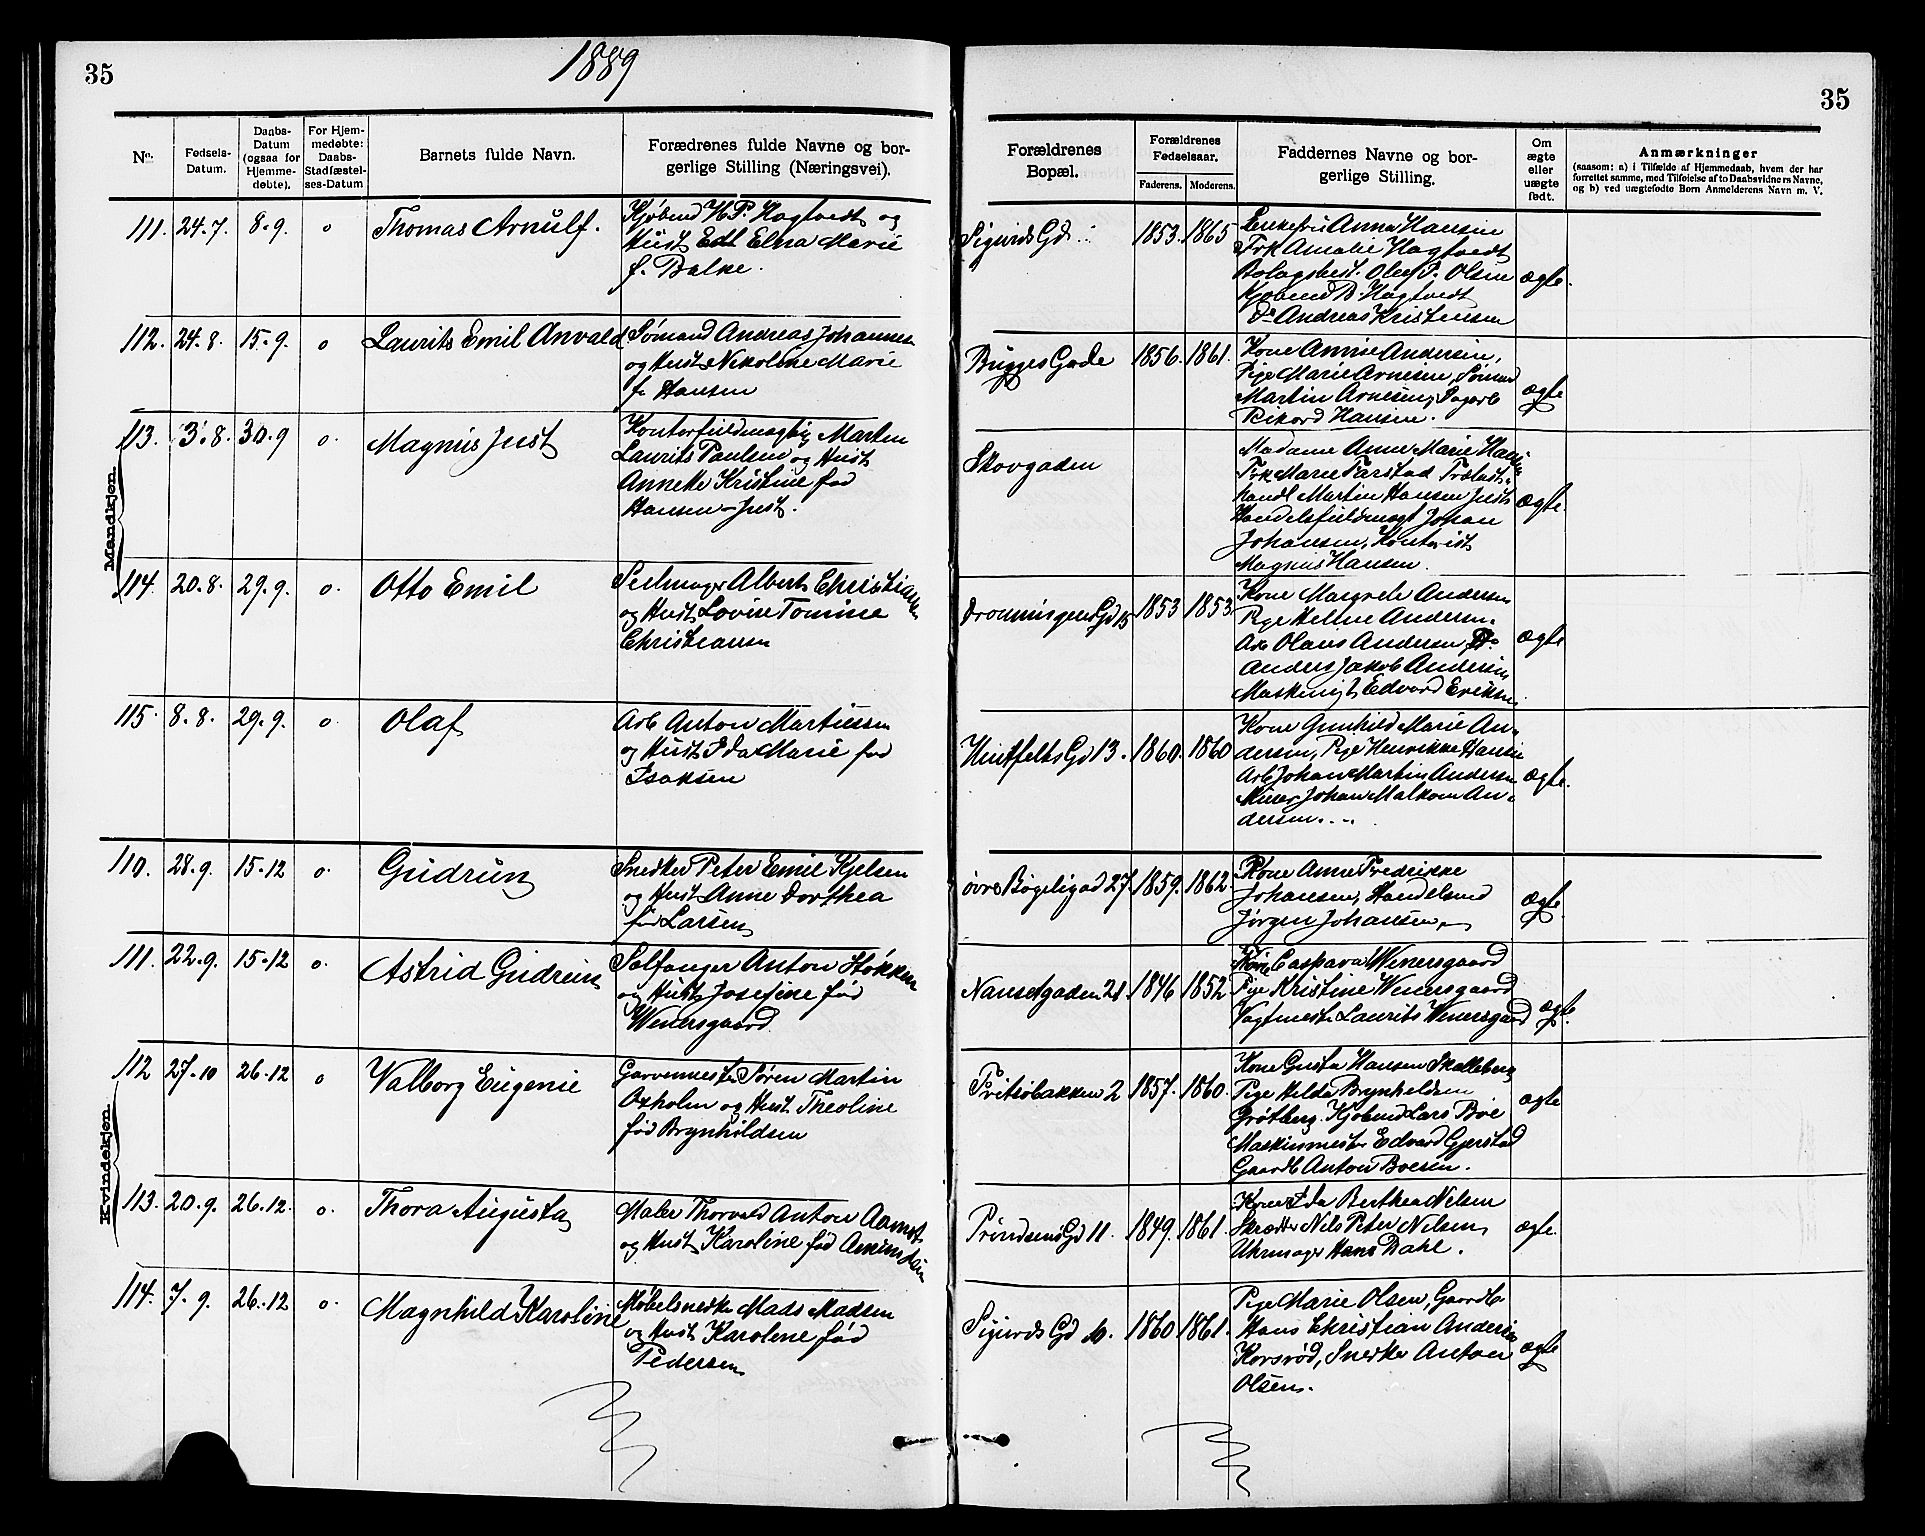 35
1889
35
No.
Fødsels-
Datum.
Daabs-
Datum
(ogsaa for
Hjemme-
døbte).
For Hjem-
medøbte:
Daabs-
Stadfæstel-
ses-Datum
Barnets fulde Navn.
Forædrenes fulde Navne og bor-
gerlige Stilling (Næringsvei).
Forældrenes
Bopæl.
Forældrenes
Fødselsaar.
Faderens.
Moderens.
Faddernes Navne og bor-
gerlige Stilling.
Om
ægte
eller
uægte
født.
Anmærkninger
(saasom: a) i Tilfælde af Hjemmedaab, hvem der har
forrettet samme, med Tilføielse af to Daabsvidners Navne,
og b) ved uægtefødte Børn Anmelderens Navn m. V.
Mandkjøn.
111. 24.7. 8.9. o Thomas Arnulf.
Kjøbmd H.P. Hagtvedt og
Hust Edl Elna Marie
f. Balke.
Sigurds Gd.
1853. 1865
Enkefru Anna Hansen
Frk Amalie Hagtvedt
Bolagsbest. Olef P. Olsen
Kjøbmd B. Hagtvedt
Do Andreas Kristensen
ægte.
112. 24.8. 15.9. o Laurits Emil Anvald
Sømand Andreas Johannesen
og Hust Nikoline Marie
f. Hansen
Brygges Gade
1856. 1861.
Kone Annie Andersen,
Pige Marie Arnesen, Sømand
Martin Arnesen, Sagarb
Rikard Hansen.
ægte
113. 3.8. 30.9 o. Magnus Just
Kontorfuldmægtig Martin
Laurits Paulsen og Hust
Anneke Kristine fød
Hansen-Just.
Skovgaden
Madame Anne Marie Hansen
Frk Marie Farstad Trælast-
handl Martin Hansen Just
Handelsfuldmægt Johan
Johansen, Kontorist
Magnus Hansen.
ægte.
114. 20.8. 29.9. o. Otto Emil
Seilmager Albert Christiansen
og Hust Lovise Tomine
Christiansen
Dronningens Gd 15
1853 1853
Kone Margrete Andersen
Pige Helene Andersen.
Arb Olaus Andersen Do
Anders Jakob Andersen
Maskinist Edvard Eriksen.
ægte
115. 8.8. 29.9. o Olaf
Arb Anton Martinsen
og Hust Ida Marie fød
Isaksen
Huitfelts Gd 13.
1860. 1860
Kone Gunhild Marie An-
dersen, Pige Henrikke Hansen
Arb Johan Martin Andersen
Murer Johan Malkom An-
dersen.
ægte.
Kvindekjøn.
110. 28.9. 15.12 o. Gudrun
Snedker Peter Emil Kjelsen
og Hust Anne Dorthea
fød Larsen
øvre Bøgeligad 27.
1859. 1862.
Kone Anne Fredrikke
Johansen, Handelsmd
Jørgen Johansen,
ægte.
111. 22.9. 15.12 o. Astrid Gudrun
Sælfanger Anton Støkken
og Hust Josefine fød
Wenersgaard
Nansetgaden 21.
1846 1852
Kone Caspara Wenersgaard
Pige Kristine Wenersgaard
Vagtmestr Laurits Wenersgaard
ægte.
112 27.10 26.12 o Valborg Eugenie
Garvermestr Søren Martin
Oxholm og Hust Theoline
fød Brynhildsen
Fritsøbakken 2
1857. 1860.
Kone Gusta Hansen Skalleberg
Pige Hilda Brynhildsen
Grøtberg. Kjøbmd Lars Boe
Maskinmestr Edvard Gjerstad
Gaardb Anton Boesen.
ægte
113. 20.9. 26.12. o. Thora Augusta
Maler Thorvald Anton Aamot
og Hust Karoline fød Amundsen
Prindsens Gd 11.
1849. 1861.
Kone Ida Berthea Nilsen
Skrædder Nils Peter Nilsen
Uhrmager Hans Dahl.
ægte.
114. 7.9. 26.12 o. Magnhild Karoline
Møbelsnedker Mads Madsen
og Hust Karolene fød
Pedersen
Sigurds Gd 10.
1860 1861.
Pige Marie Olsen, Gaardb
Hans Christian Andersen
Korsrød, Snedker Anton
Olsen.
ægte